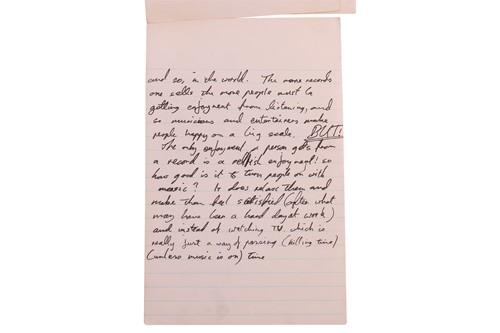 and so, in the world. The more records
one sells the more people must be
getting enjoyment from listening, and
so musicians and entertainers make
people happy on a big scale. BUT!
The only enjoyment a person gets from
a record is a selfish enjoyment! so
how good is it to turn people on with
music? It does relax them and
make them feel satisfied (after what
may have been a hard day at work)
and instead of watching TV. which is
really just a way of passing (killing time)
(unless music is on) time